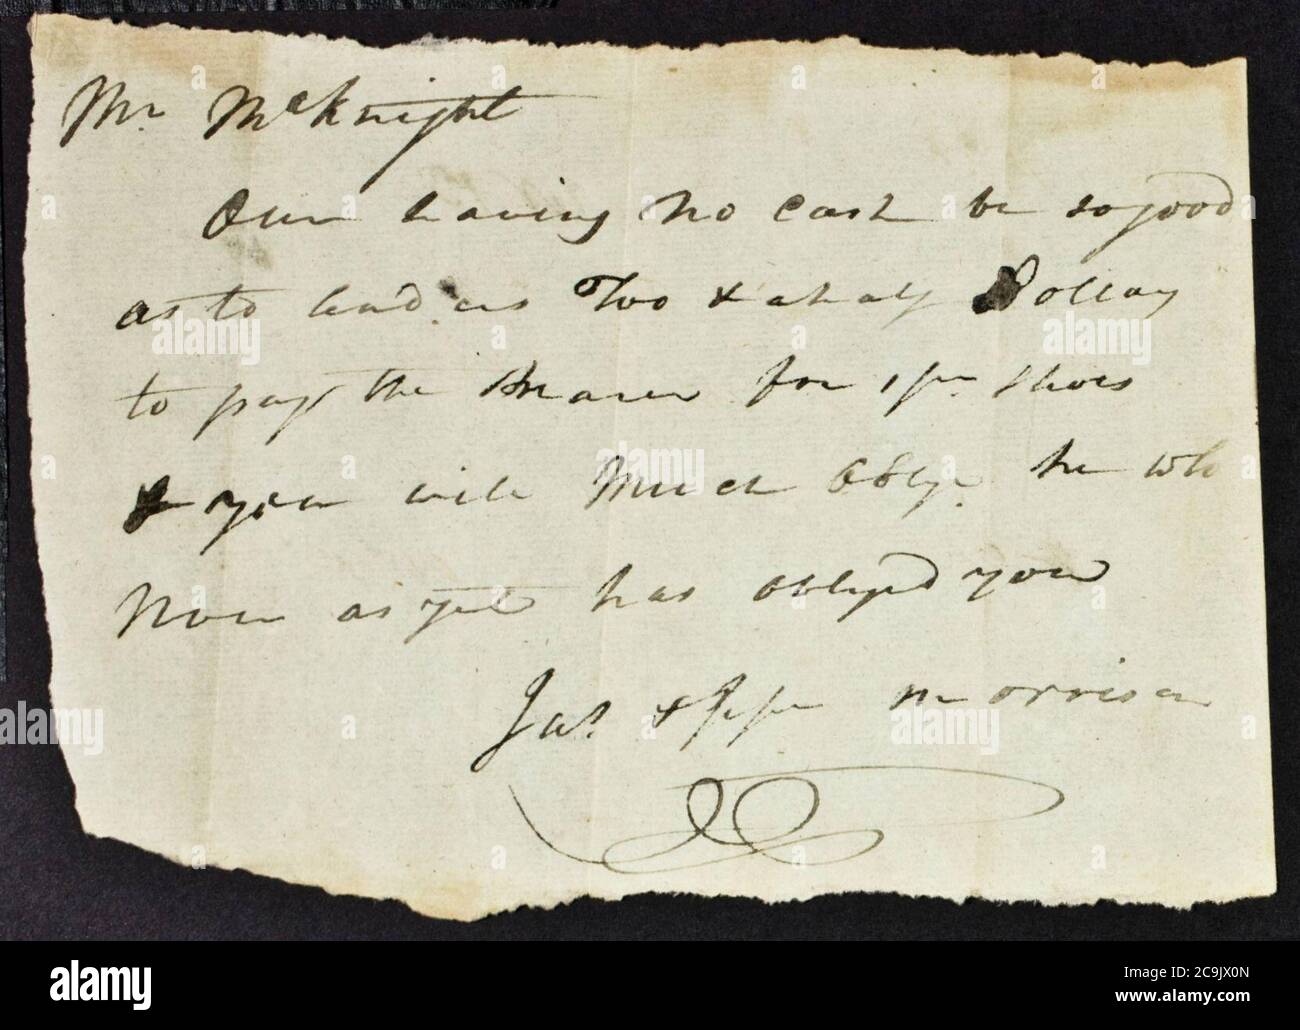 Mr. McKnight
Our having no cash be so good
as to lend us Two & a half Dollars
to pay the Bearer for 1 pr shoes
& you will Much Oblige he who
Now as yet has obliged you
Jas. & Jesse Morrison
alamy
Image ID: 2C9JX0N
www.alamy.com